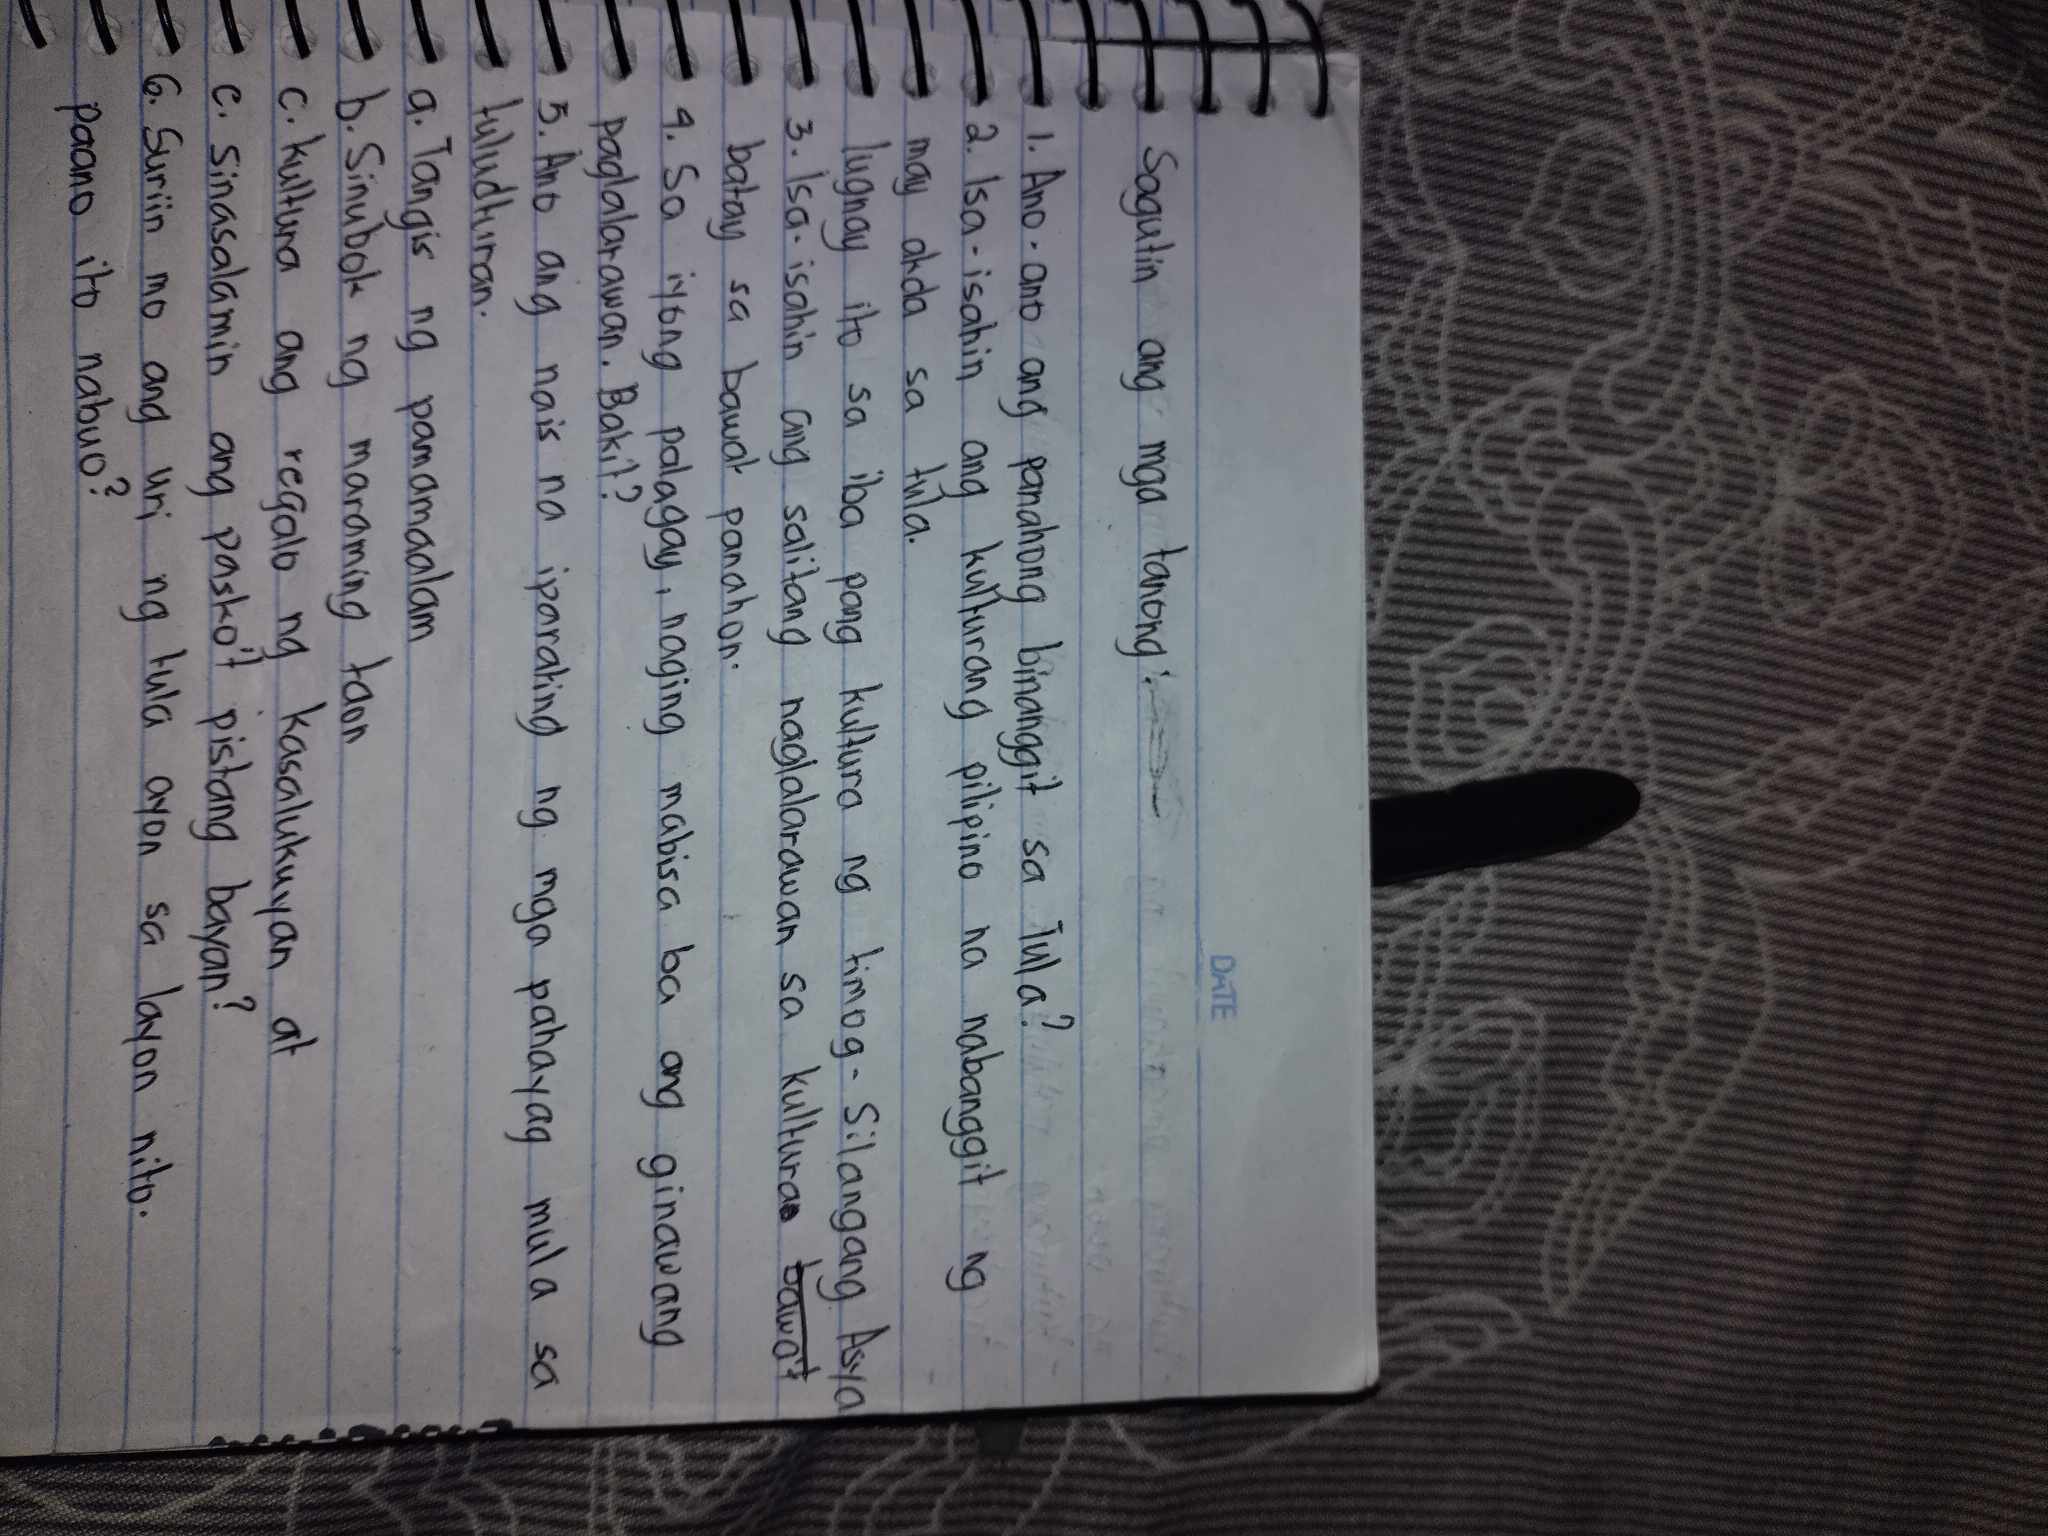 DATE
Sagutin ang mga tanong:
1. Ano-ano ang panahong binanggit sa Tula?
2. Isa-isahin ang kulturang pilipino na nabanggit ng
may akda sa tula.
Iugnay ito sa iba pang kultura ng timog-Silangang Asya
3. Isa-isahin ang salitang naglalarawan sa kultura bawat
batay sa bawat panahon.
4. Sa iyong palagay, naging mabisa ba ang ginawang
paglalarawan. Bakit?
5. Ano ang nais na iparating ng mga pahayag mula sa
tuludturan.
a. Tangis ng pamamaalam
b. Sinubok ng maraming taon
c. kultura ang regalo ng kasalukuyan at
c. sinasalamin ang pasko't pistang bayan?
6. Suriin mo ang uri ng tula ayon sa layon nito.
paano ito nabuo?